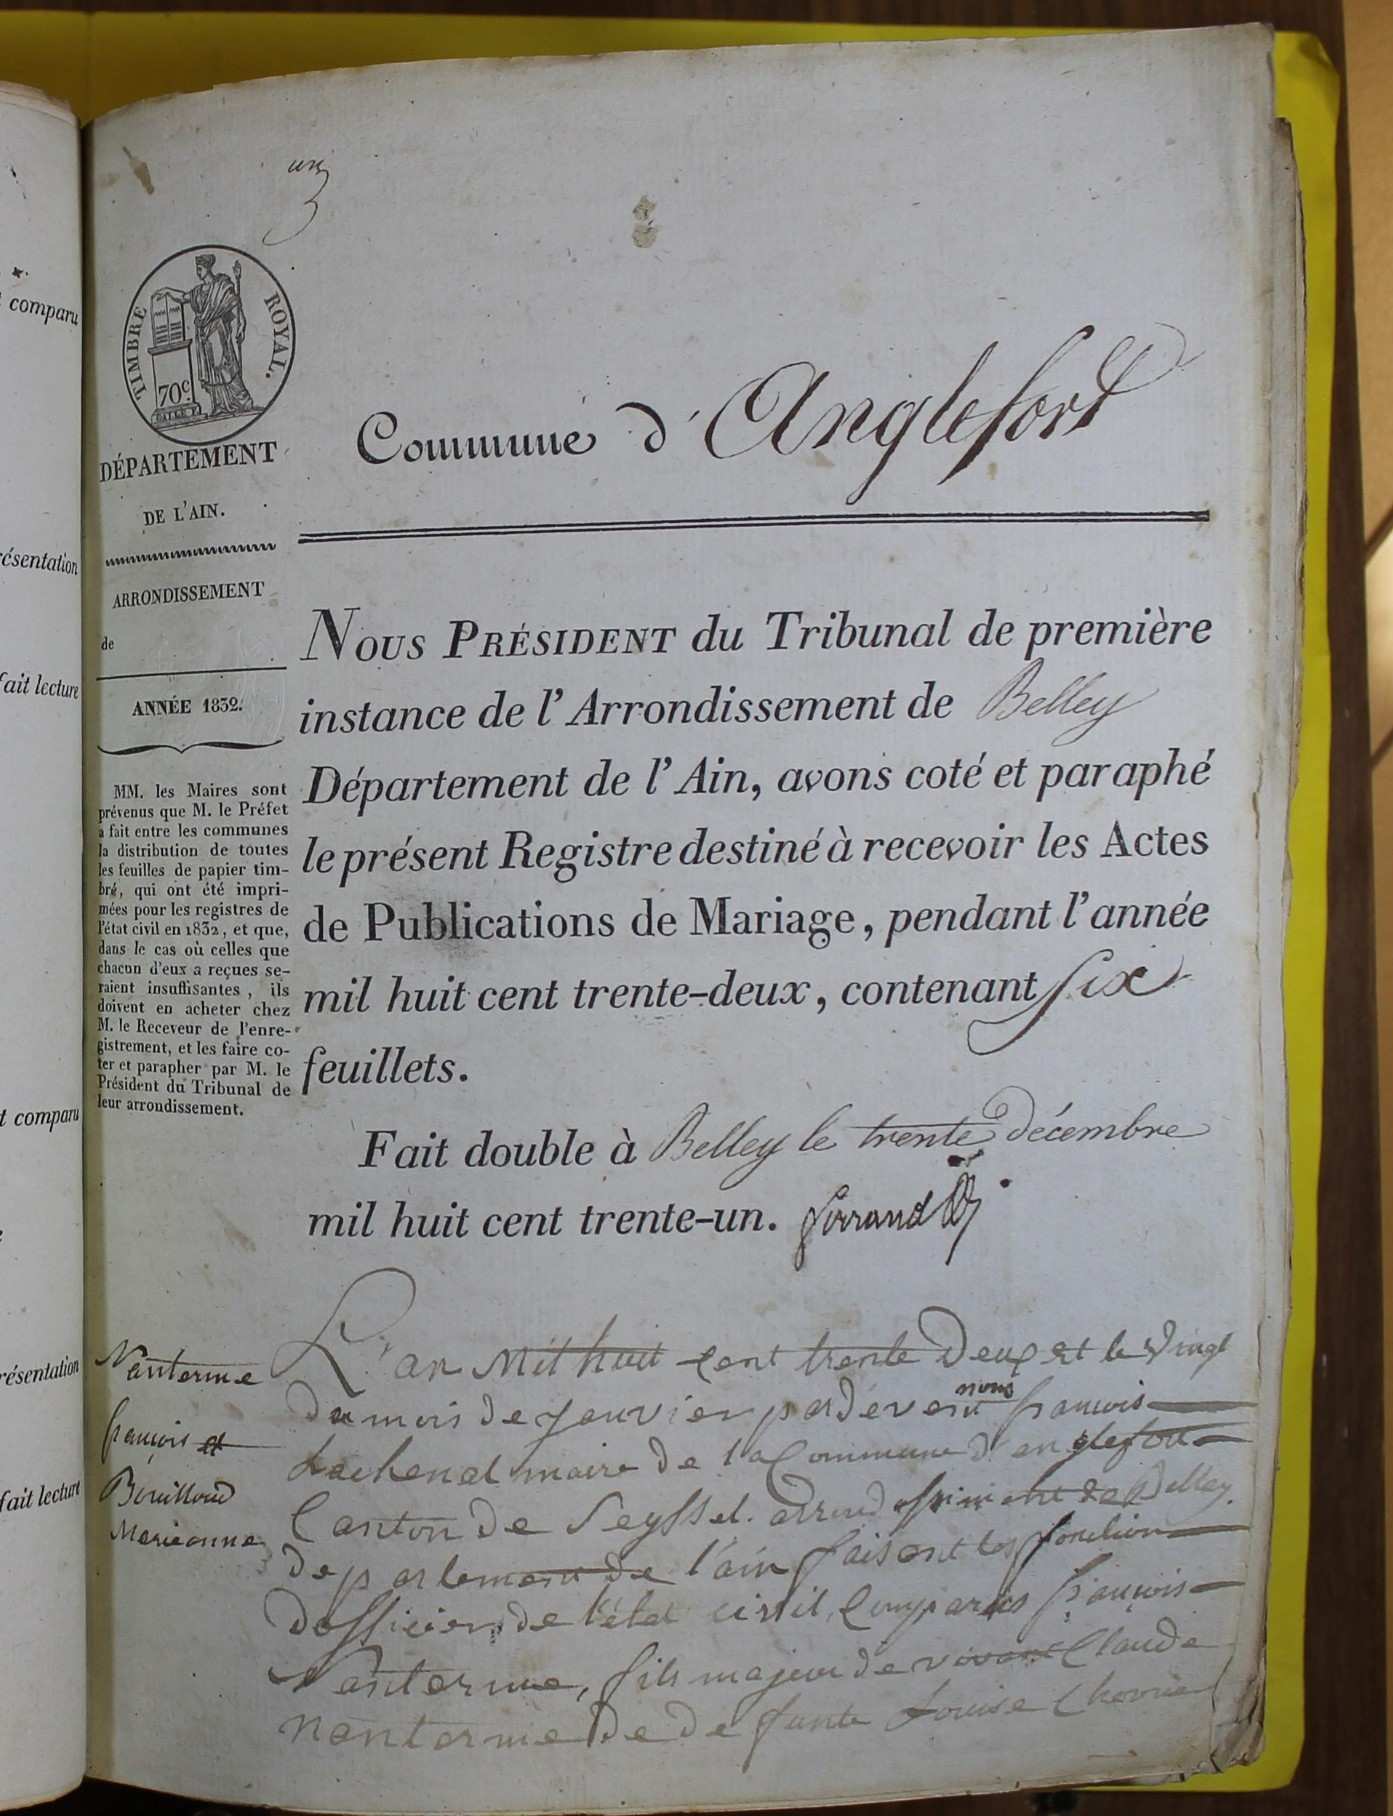 comparu
résentation
fait lecture
t comparu
résentation
fait lecture
un
TIMBRE ROYAL.
70c
DÉPARTEMENT
DE L'AIN.
ARRONDISSEMENT
de
ANNÉE 1832.
MM. les Maires sont
prévenus que M. le Préfet
a fait entre les communes
la distribution de toutes
les feuilles de papier tim-
bré, qui ont été impri-
mées pour les registres de
l'état civil en 1832, et que,
dans le cas où celles que
chacun d'eux a reçues se-
raient insuffisantes, ils
doivent en acheter chez
M. le Receveur de l'enre-
gistrement, et les faire co-
ter et parapher par M. le
Président du Tribunal de
leur arrondissement.
Commune d'Anglefort
NOUS PRÉSIDENT du Tribunal de première
instance de l'Arrondissement de Belley
Département de l'Ain, avons coté et paraphé
le présent Registre destiné à recevoir les Actes
de Publications de Mariage, pendant l'année
mil huit cent trente-deux, contenant six
feuillets.
Fait double à Belley le trente décembre
mil huit cent trente-un. ferrand
Nanterme
françois et
Bouilloud
Marieanne
L'an Mil huit cent trente Deux et le vingt
du mois de janvier pardevant nous françois
Lachenal maire de la Commune d'anglefort
Canton de Seyssel. arrondissiment de Belley
departement de l'ain faisant les fonction
dofficier de l'état civil, Comparus françois
Nanterme, fils majeur de vivant Claude
nanterme de de funte Louise